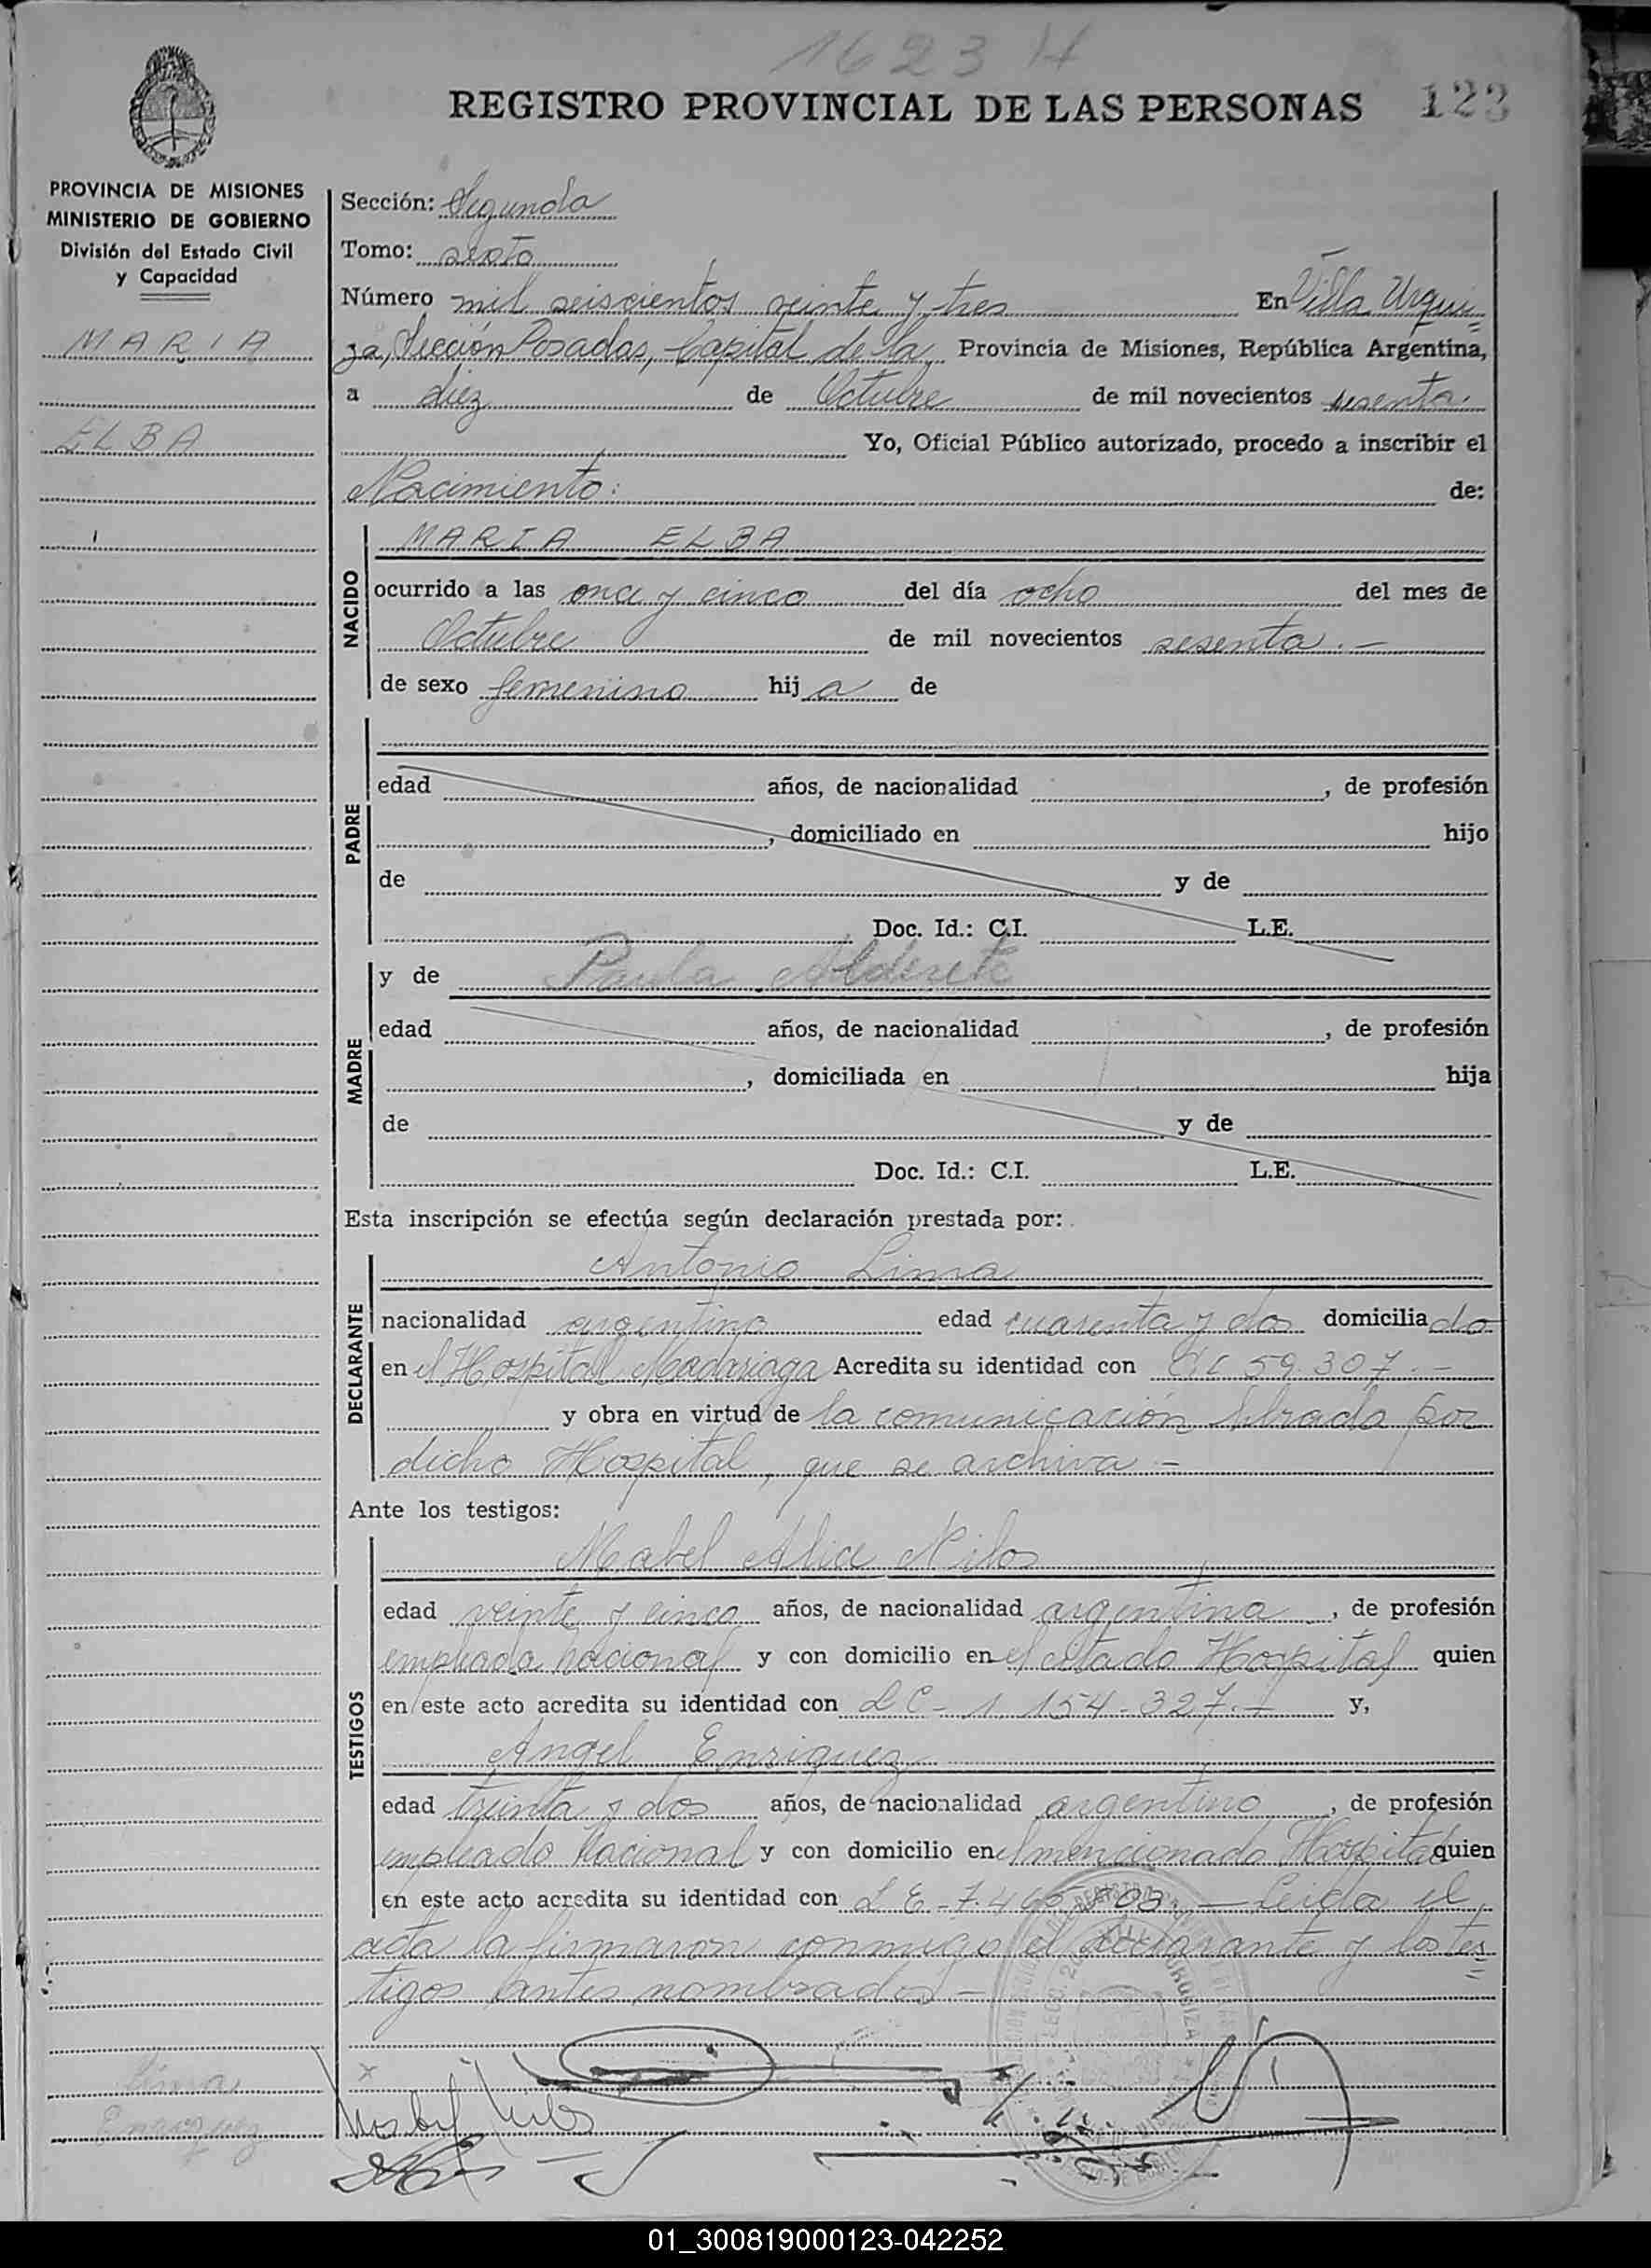 1623 H
REGISTRO PROVINCIAL DE LAS PERSONAS 123
PROVINCIA DE MISIONES
MINISTERIO DE GOBIERNO
División del Estado Civil
y Capacidad
MARIA
ELBA
Sección: Segunda
Tomo: sexto
Número mil seiscientos veinte y tres En Villa Urqui=
za, Sección Posadas, Capital de la Provincia de Misiones, República Argentina,
a diez de Octubre de mil novecientos sesenta.
Yo, Oficial Público autorizado, procedo a inscribir el
Nacimiento: de:
NACIDO
MARIA ELBA
ocurrido a las once y cinco del día ocho del mes de
Octubre de mil novecientos sesenta.-
de sexo femenino hija de
PADRE
edad años, de nacionalidad , de profesión
, domiciliado en hijo
de y de
Doc. Id.: C.I. L.E.
MADRE
y de Paula Alderete
edad años, de nacionalidad , de profesión
, domiciliada en hija
de y de
Doc. Id.: C.I. L.E.
Esta inscripción se efectúa según declaración prestada por:
DECLARANTE
Antonio Lima
nacionalidad argentino edad cuarenta y dos domiciliado
en el Hospital Madariaga Acredita su identidad con 59.307.-
y obra en virtud de la comunicación librada por
dicho Hospital, que se archiva -
Ante los testigos:
TESTIGOS
Mabel Alice Nilos
edad veinte y cinco años, de nacionalidad argentina, de profesión
empleada nacional y con domicilio en el citado Hospital quien
en este acto acredita su identidad con L C - 1.154.327.- y,
Angel Enriquez
edad treinta y dos años, de nacionalidad argentino, de profesión
empleado Nacional y con domicilio en el mencionado Hospital quien
en este acto acredita su identidad con L E - 7.4 - Leida el
acta la firmaron conmigo el declarante y los tes=
tigos antes nombrados -
x
Lima
Enriquez
01_300819000123-042252